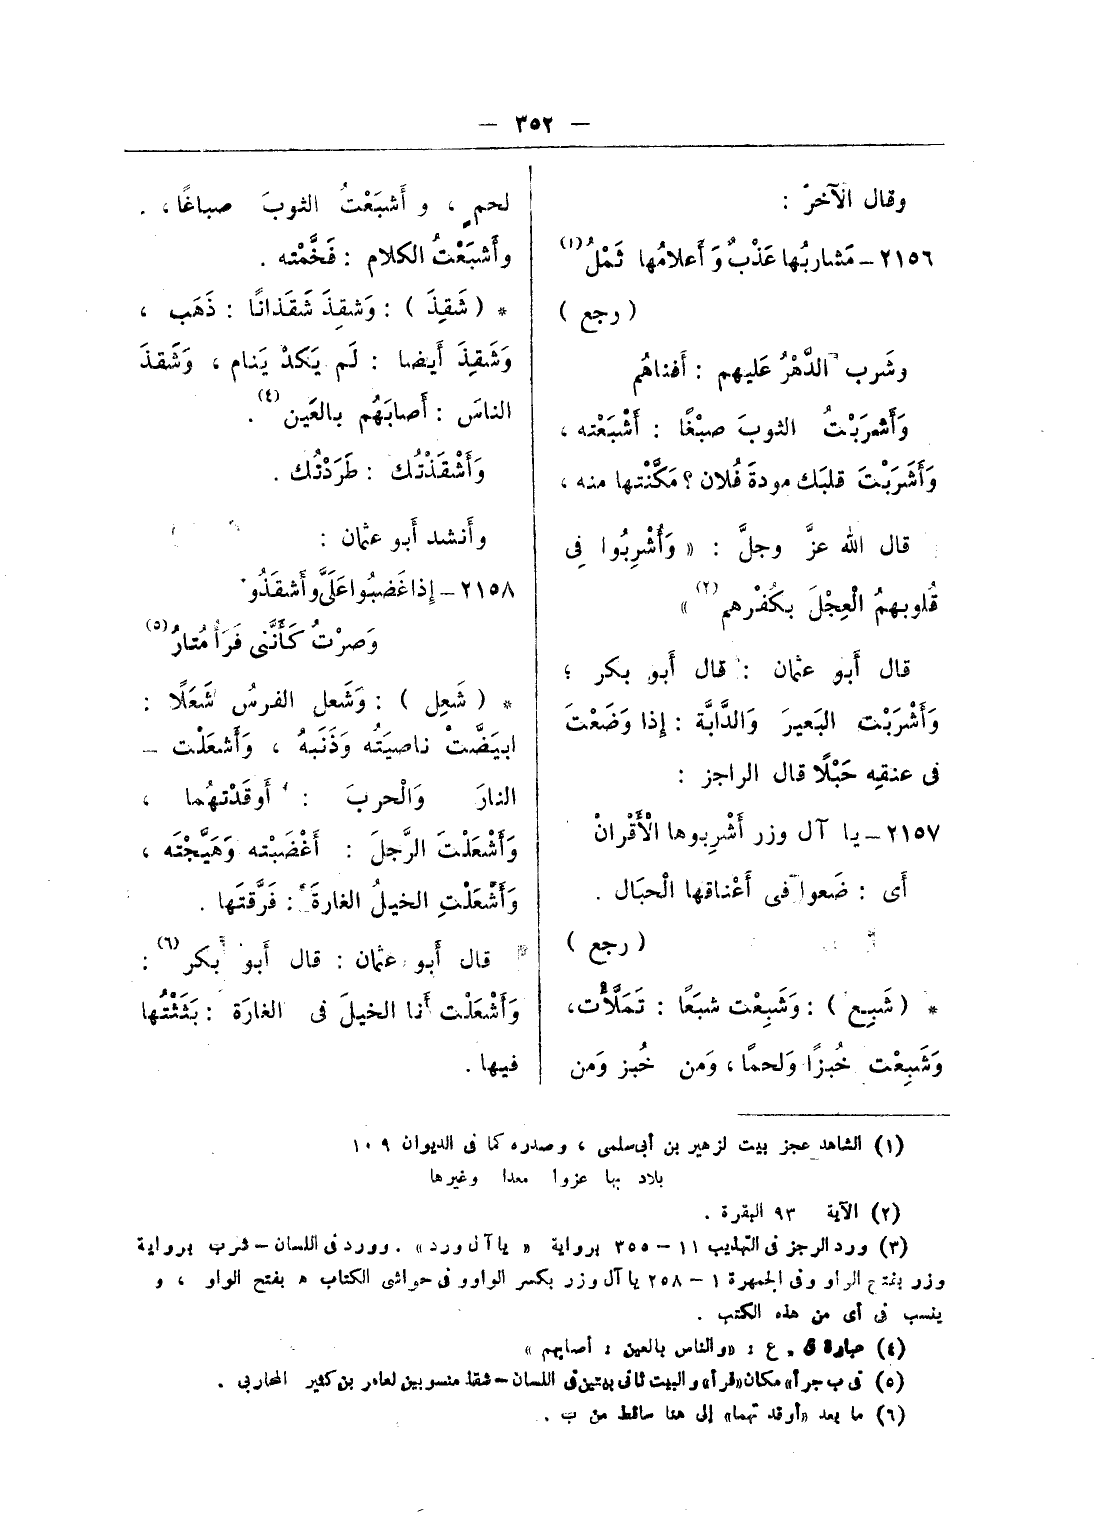 — ٣٥٢ —
وقال الآخر :
٢١٥٦ – مَشاربُها عَذْبٌ وَأَعلامُها ثَمْلُ (١)
( رجع )
وشَرب الدَّهْرُ عَليهم : أَفناهُم
وَأَشْرَبْتُ الثوبَ صبْغًا : أَشْبَعْته ،
وَأَشْرَبْتَ قلبَك مودةَ فُلان ؟ مَكَّنْتها منه ،
قال الله عزَّ وجلَّ : « وَأُشْرِبُوا فِى
قُلوبهمُ الْعِجْلَ بكُفْرهم (٢) »
قال أَبو عثمان : قال أَبو بكر ؛
وَأَشْرَبْت البَعيرَ وَالدَّابَّة : إذا وَضَعْتَ
فى عنقِه حَبْلًا قال الراجز :
٢١٥٧ – يا آل وزر أَشْرِبوها الْأَقْرانْ
أَى : ضَعوا فى أَعْناقها الْحبَال .
( رجع )
* ( شَبِع ) : وَشَبِعْت شبَعًا : تَمَلَّأْت،
وَشَبِعْت خُبزًا وَلحمًا ، وَمن خُبز وَمن
لحمٍ ، و أَشبَعْتُ الثوبَ صباغًا ، .
وأَشبَعْتُ الكلام : فَخَّمْته .
* ( شَقِذَ ) : وَشقِذَ شَقَذانًا : ذَهَب ،
وَشَقِذَ أَيضا : لَم يَكَدْ يَنام ، وَشَقذَ
الناسَ : أَصابَهُم بالعَين (٤) .
وَأَشْقَذْتُك : طَرَدْتُك .
وأَنشد أَبو عثمان :
٢١٥٨ – إذا غَضبُوا عَلَىَّ وأَشقَذُو
وَصرْتُ كَأَنَّنى فَرَأُ مُتارُ (٥)
* ( شَعِل ) : وَشَعل الفرسُ شَعَلًا :
ابيَضَّتْ ناصيَتُه وَذَنَبهُ ، وَأَشعَلْت –
النارَ وَالْحربَ : أَوقَدْتهُما ،
وَأَشْعَلْتَ الرَّجلَ : أَغْضَبْته وَهَيَّجْته ،
وَأَشْعَلْتِ الخيلُ الغارةَ : فَرَّقتَها .
قال أَبو عثمان : قال أَبو بكر (٦) :
وَأَشْعَلْت أَنا الخيلَ فى الغارَة : بَثَثْتُها
فيها .
(١) الشاهد عجز بيت لزهير بن أبى سلمى ، وصدره كما فى الديوان ١٠٩
بلاد بها عزوا معدا وغيرها
(٢) الآية ٩٣ البقرة .
(٣) ورد الرجز فى التهذيب ١١ – ٣٥٥ برواية « يا آل ورد » . وورد فى اللسان – شرب برواية
وزر بفتح الراو وفى الجمهرة ١ – ٢٥٨ يا آل وزر بكسر الواو وفى حواشى الكتاب ه بفتح الواو ، و
ينسب فى أى من هذه الكتب .
(٤) عبارة ق . ع : « والناس بالعين : أصابهم »
(٥) فى ب جرأ» مكان «فرأ» والبيت ثانى بيتين فى اللسان – شقذ منسوبين لعامر بن كثير المحاربى .
(٦) ما بعد «أوقد تهما» إلى هنا ساقط من ب .